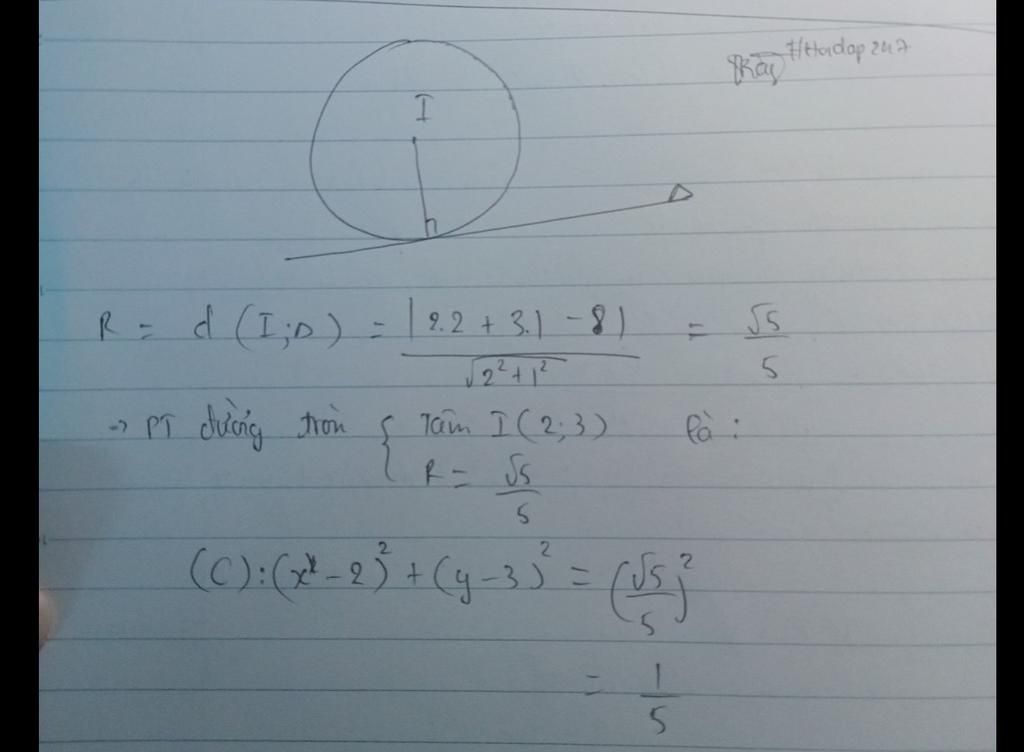 #Hoidap247
I
Δ
R = d (I;Δ) = |2.2 + 3.1 - 8| / √2² + 1² = √5 / 5
→ PT đường tròn { Tâm I(2;3) là:
R = √5 / 5
(C): (x - 2)² + (y - 3)² = (√5 / 5)²
= 1 / 5